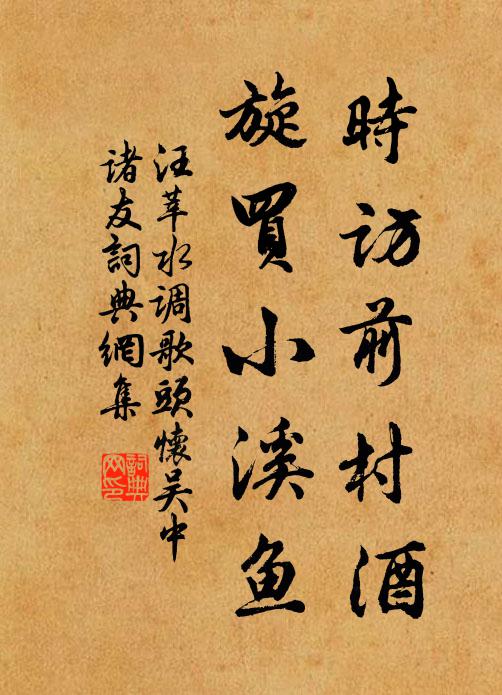 時訪前村酒
旋買小溪鱼
汪莘水调歌頭懷吴中
诸友詞典網集
詞典网印